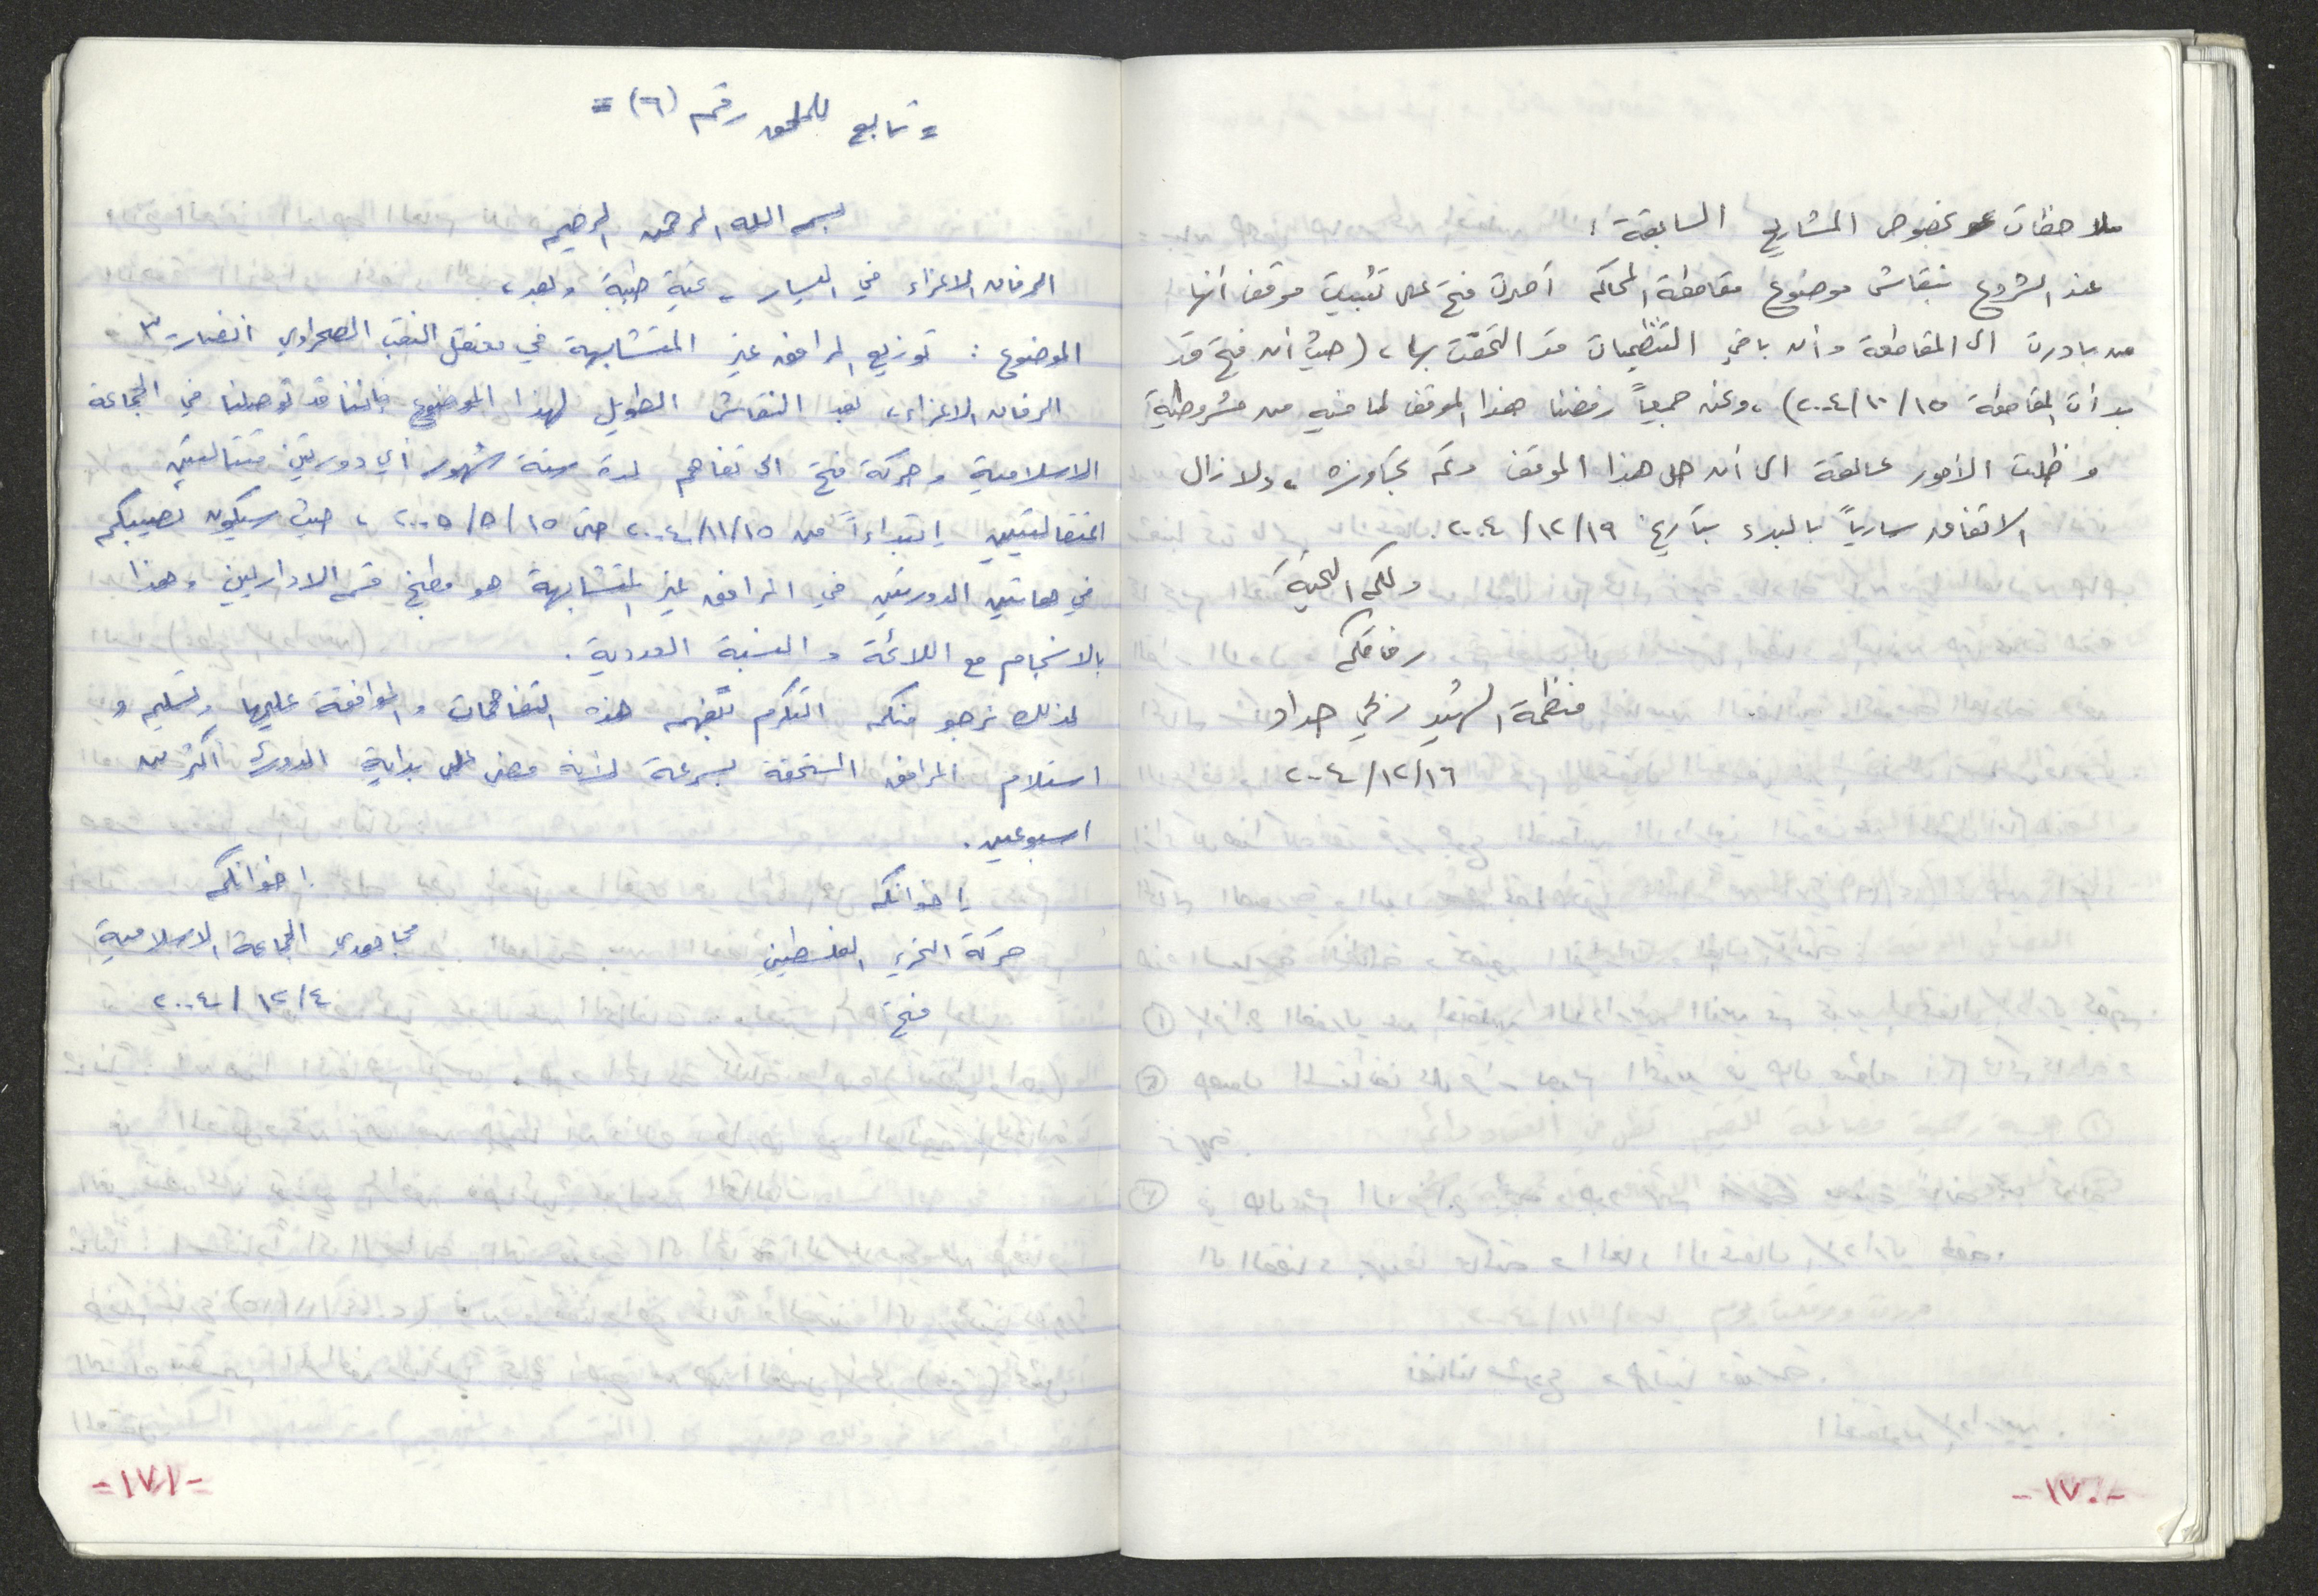 ملاحظات بخصوص المشاريع السابقة :
عند الشروع بنقاش موضوع مقاطعة المحاكم أصرت فتح على تثبيت موقف أنها
من بادرت الى المقاطعة وأن باقي التنظيمات قد التحقت بها، (حيث أن فتح قد
بدأت المقاطعة ١٥/١٠/٢٠٠٤)، ونحن جميعاً رفضنا هذا الموقف لما فيه من مشروطية
وظلت الأمور عالقة الى أن حل هذا الموقف وتم تجاوزه، ولازال
الاتفاق سارياً بالبدء بتاريخ ١٩/١٢/٢٠٠٤.
ولكم التحية
رفاقكم
منظمة الشهيد ربحي حداد
١٦/١٢/٢٠٠٤
-١٧٠-
= تابع للملحق رقم (٦) =
بسم الله الرحمن الرحيم
الرفاق الاعزاء في اليسار، تحية طيبة وبعد،
الموضوع : توزيع المرافق غير المتشابهة في معتقل النقب الصحراوي انصار ٣
الرفاق الاعزاء، بعد النقاش الطويل لهذا الموضوع فإننا قد توصلنا في الجماعة
الاسلامية وحركة فتح الى تفاهم لمدة ستة شهور أي دورتين متتاليتين
المتتاليتين إبتداءاً من ١٥/١١/٢٠٠٤ حتى ١٥/٥/٢٠٠٥، حيث سيكون نصيبكم
في هاتين الدورتين في المرافق غير المتشابهة هو مطبخ قسم الاداريين وهذا
بالانسجام مع اللائحة والنسبة العددية.
لذلك نرجو منكم التكرم بتفهم هذه التفاهمات والموافقة عليها وتسليم و
استلام المرافق المستحقة بسرعة لأنه مضى على بداية الدورة أكثر من
اسبوعين.
إخوانكم
اخوانكم
حركة التحرير الفلسطيني
مجاهدي الجماعة الاسلامية
فتح
٤/١٢/٢٠٠٤
-١٧١-